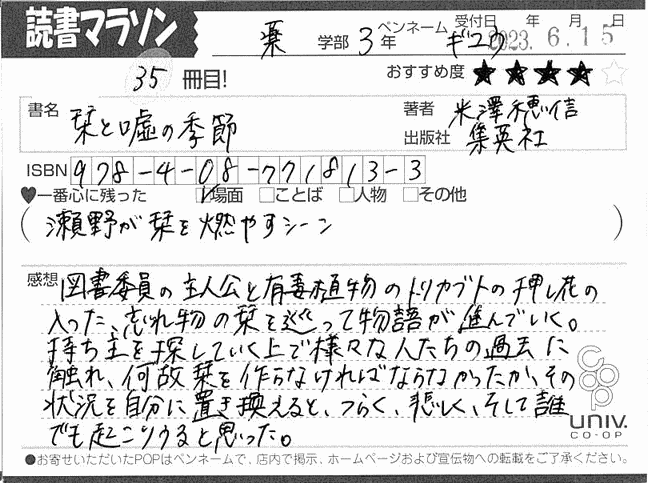 読書マラソン
薬 学部 3年 ペンネーム ギユウ 受付日 年 月 日
2023. 6. 15
35 冊目! おすすめ度 ★★★★☆
書名 栞と嘘の季節
著者 米澤穂信
出版社 集英社
ISBN 978-4-08-771813-3
♥一番心に残った ☑場面 □ことば □人物 □その他
(瀬野が栞を燃やすシーン)
感想 図書委員の主人公と有毒植物のトリカブトの押し花の
入った、忘れ物の栞を巡って物語が進んでいく。
持ち主を探していく上で様々な人たちの過去に
触れ、何故栞を作らなければならなかったか、その
状況を自分に置き換えると、つらく、悲しく、そして誰
でも起こりうると思った。
coop
UNIV.
CO-OP
●お寄せいただいたPOPはペンネームで、店内で掲示、ホームページおよび宣伝物への転載をご了承ください。